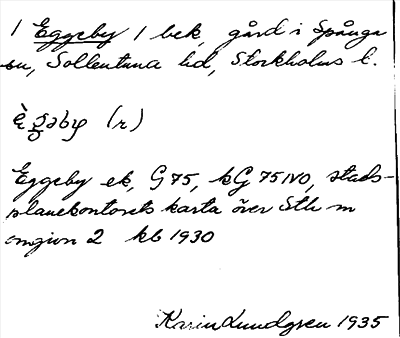 1 Eggeby / bek, gård i Spånga
sn, Sollentuna hd, Stockholms l.
(r)
Eggeby ek, G 75, kG 75 NO, stads-
planekontorets karta över Sth m
omgivn 2 kb 1930
Karin Lundgren 1935